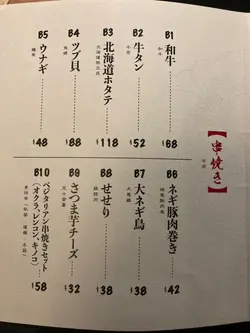 【串焼き】
串烧
B1
和牛
和牛
¥68
B2
牛タン
牛舌
¥52
B3
北海道ホタテ
北海道扇贝
¥118
B4
ツブ貝
¥88
B5
ウナギ
鳗鱼
¥48
B6
ネギ豚肉巻き
¥42
B7
大ネギ鳥
¥38
B8
せせり
¥38
B9
さつま芋チーズ
芝士番薯
¥32
B10
ベジタリアン串焼きセット
(オクラ、レンコン、キノコ)
¥58